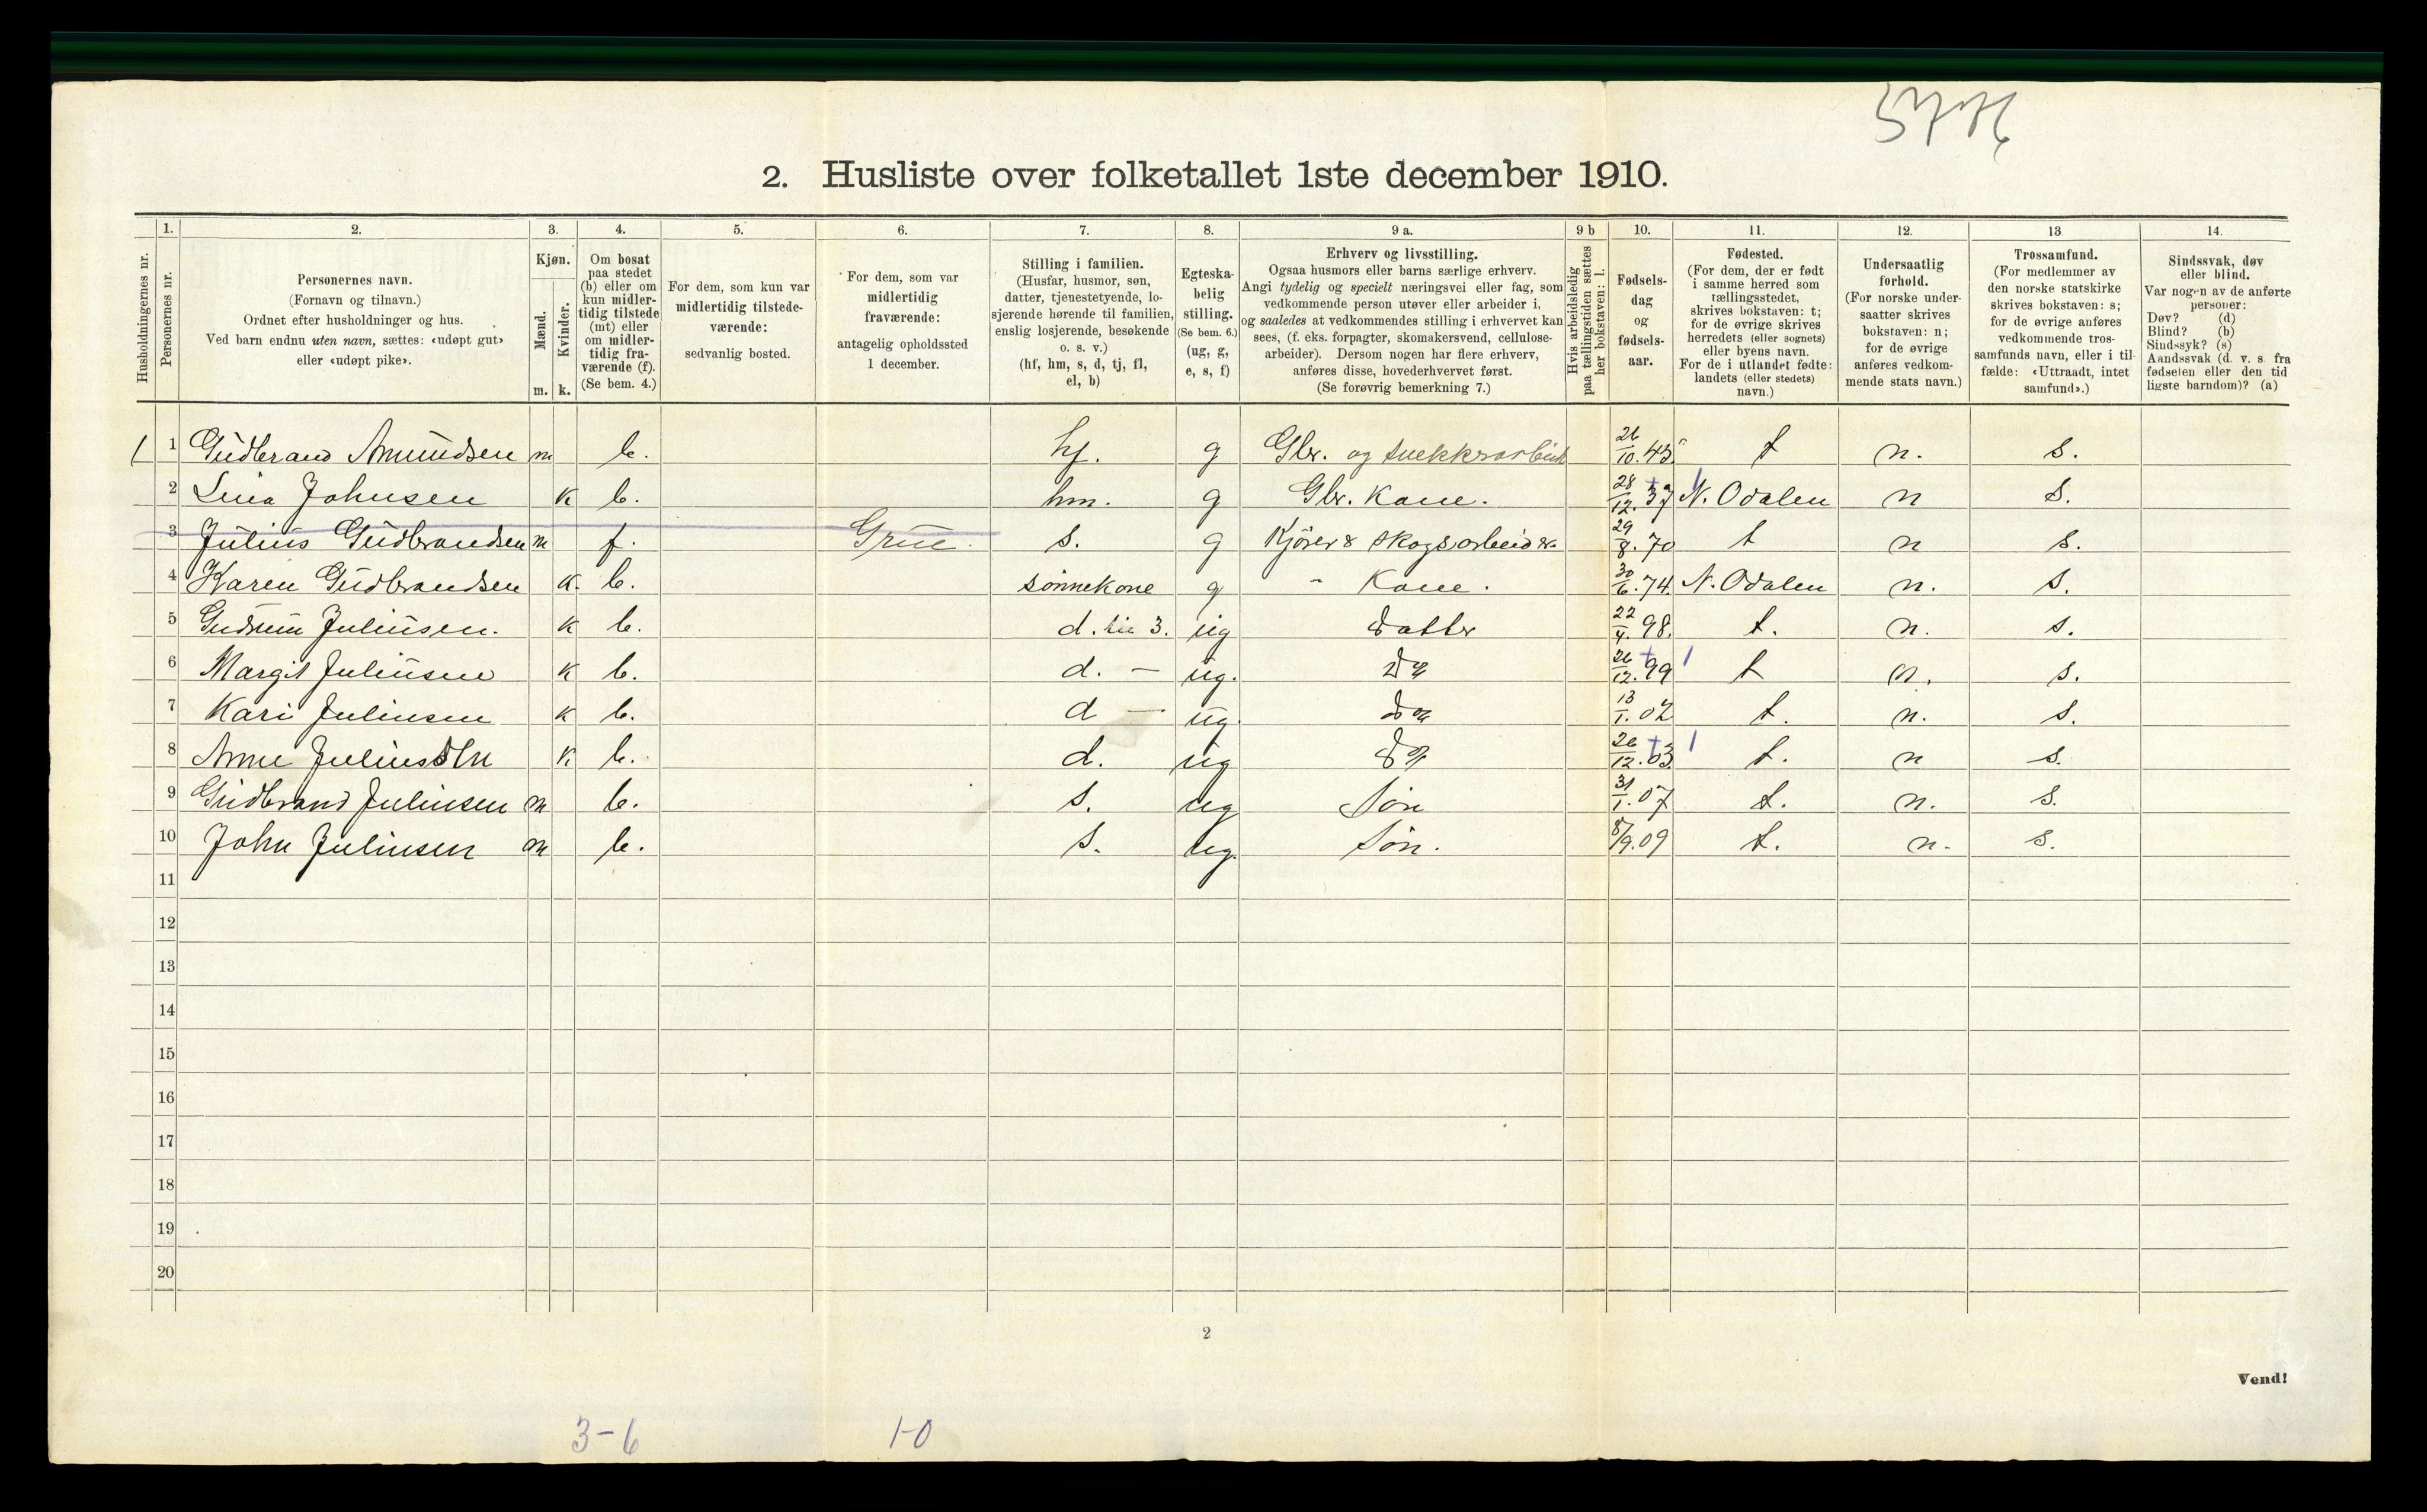 5776
2. Husliste over folketallet 1ste december 1910.
Husholdningernes nr.
1. Personernes nr.
2. Personernes navn. (Fornavn og tilnavn.) Ordnet efter husholdninger og hus. Ved barn endnu uten navn, sættes: «udøpt gut» eller «udøpt pike».
3. Kjøn. Mænd. m. Kvinder. k.
4. Om bosat paa stedet (b) eller om kun midlertidig tilstede (mt) eller om midlertidig fraværende (f). (Se bem. 4.)
5. For dem, som kun var midlertidig tilstedeværende: sedvanlig bosted.
6. For dem, som var midlertidig fraværende: antagelig opholdssted 1 december.
7. Stilling i familien. (Husfar, husmor, søn, datter, tjenestetyende, losjerende hørende til familien, enslig losjerende, besøkende o. s. v.) (hf, hm, s, d, tj, fl, el, b)
8. Egteskabelig stilling. (Se bem. 6.) (ug, g, e, s, f)
9 a. Erhverv og livsstilling. Ogsaa husmors eller barns særlige erhverv. Angi tydelig og specielt næringsvei eller fag, som vedkommende person utøver eller arbeider i, og saaledes at vedkommendes stilling i erhvervet kan sees, (f. eks. forpagter, skomakersvend, cellulosearbeider). Dersom nogen har flere erhverv, anføres disse, hovederhvervet først. (Se forøvrig bemerkning 7.)
9 b Hvis arbeidsledig paa tællingstiden sættes her bokstaven: l.
10. Fødselsdag og fødselsaar.
11. Fødested. (For dem, der er født i samme herred som tællingsstedet, skrives bokstaven: t; for de øvrige skrives herredets (eller sognets) eller byens navn. For de i utlandet fødte: landets (eller stedets) navn.)
12. Undersaatlig forhold. (For norske undersaatter skrives bokstaven: n; for de øvrige anføres vedkommende stats navn.)
13. Trossamfund. (For medlemmer av den norske statskirke skrives bokstaven: s; for de øvrige anføres vedkommende trossamfunds navn, eller i tilfælde: «Uttraadt, intet samfund».)
14. Sindssvak, døv eller blind. Var nogen av de anførte personer: Døv? (d) Blind? (b) Sindssyk? (s) Aandssvak (d. v. s. fra fødselen eller den tidligste barndom)? (a)
1 1 Gudbrand Amundsen m b. hf. g Gbr. og 26/10.45 t n. s.
2 Lina Johnsen k b. hm. g Gbr. Kone. 28/12.37 N. Odalen n s.
3 Julius Gudbrandsen m f. Grue. s. g Kjører & skogsarbeider 29/8.70 t n s.
4 Karen Gudbrandsen k. b. sønnekone g " Kone. 30/6.74. N. Odalen n. s.
5 Gudrun Juliusen. k b. d. til 3. ug datter 22/4.98. t. n. s.
6 Margit Juliusen k b. d. — ug. do 26/12.99 t n. s.
7 Kari Juliusen k b. d — ug. do 13/1.02 t. n. s.
8 Anne Juliussen k b. d. ug do 26/12.03. t. n s.
9 Gudbrand Juliusen m b. s. ug Søn 31/1.07 t. n. s.
10 John Juliusen m b. s. ug. Søn. 8/9.09 t. n. s.
11
12
13
14
15
16
17
18
19
20
2
Vend!
3-6 1-0